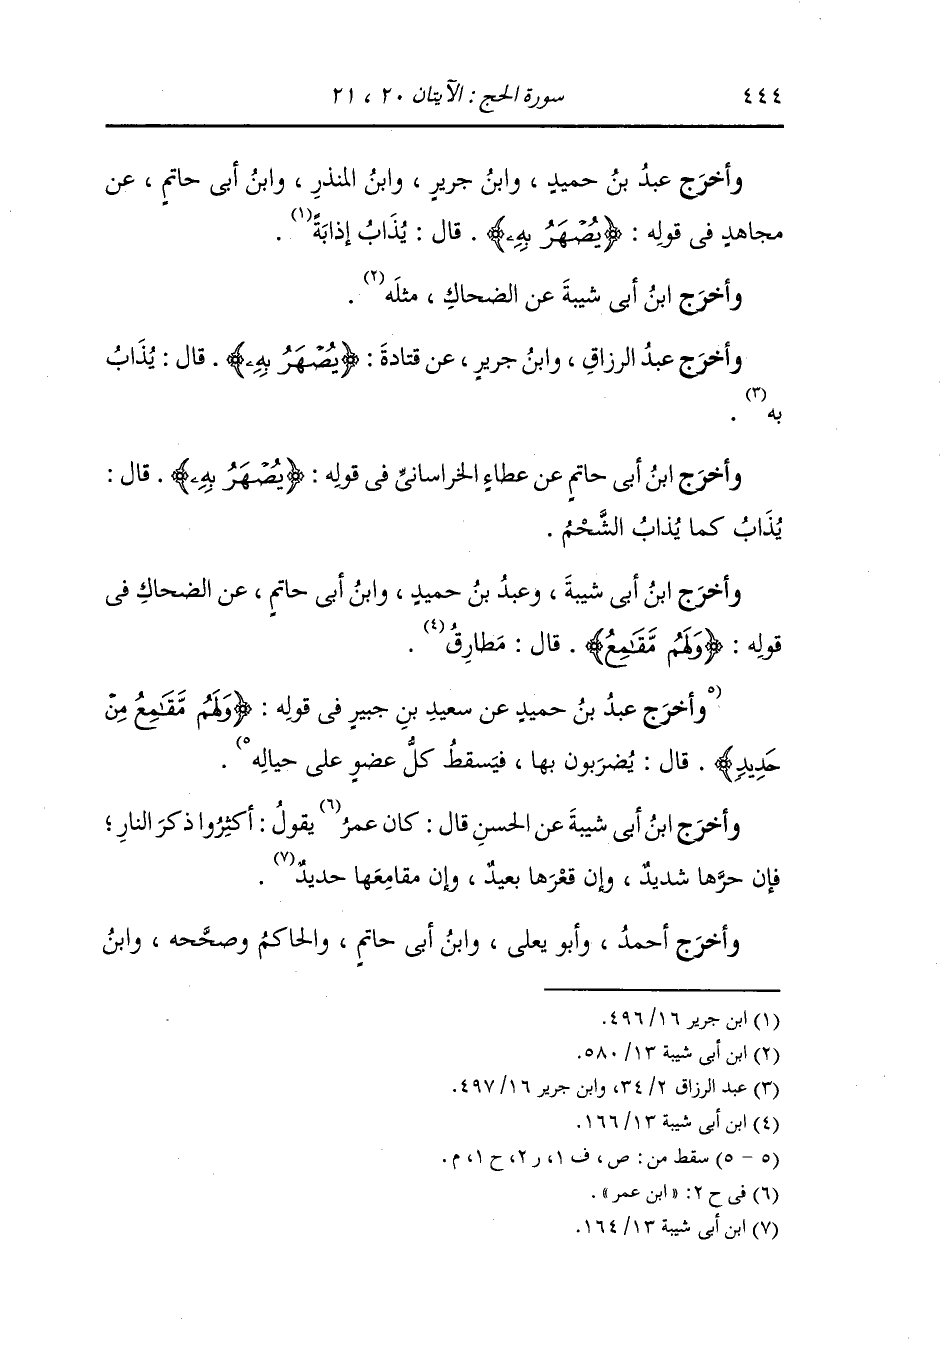 ٤٤٤ سورة الحج : الآيتان ٢٠ ، ٢١
وأخرَج عبدُ بنُ حميدٍ ، وابنُ جريرٍ ، وابنُ المنذرِ ، وابنُ أبى حاتمٍ ، عن
مجاهدٍ فى قولِه : ﴿يُصْهَرُ بِهِۦ﴾ . قال : يُذَابُ إذابَةً(١) .
وأخرَج ابنُ أبى شيبةَ عن الضحاكِ ، مثلَه(٢) .
وأخرَج عبدُ الرزاقِ ، وابنُ جريرٍ ، عن قتادةَ : ﴿يُصْهَرُ بِهِۦ﴾ . قال : يُذَابُ
به(٣) .
وأخرَج ابنُ أبى حاتمٍ عن عطاءٍ الخراسانىِّ فى قولِه : ﴿يُصْهَرُ بِهِۦ﴾ . قال :
يُذَابُ كما يُذابُ الشَّحْمُ .
وأخرَج ابنُ أبى شيبةَ ، وعبدُ بنُ حميدٍ ، وابنُ أبى حاتمٍ ، عن الضحاكِ فى
قولِه : ﴿وَلَهُم مَّقَٰمِعُ﴾ . قال : مَطارِقُ(٤) .
(٥وأخرَج عبدُ بنُ حميدٍ عن سعيدِ بنِ جبيرٍ فى قولِه : ﴿وَلَهُم مَّقَٰمِعُ مِنْ
حَدِيدٍ﴾ . قال : يُضرَبون بها ، فيَسقطُ كلُّ عضوٍ على حيالِه٥) .
وأخرَج ابنُ أبى شيبةَ عن الحسنِ قال : كان عمرُ(٦) يقولُ : أكثِرُوا ذكرَ النارِ ؛
فإن حرَّها شديدٌ ، وإن قعْرَها بعيدٌ ، وإن مقامِعَها حديدٌ(٧) .
وأخرَج أحمدُ ، وأبو يعلى ، وابنُ أبى حاتمٍ ، والحاكمُ وصحَّحه ، وابنُ
(١) ابن جرير ١٦/ ٤٩٦.
(٢) ابن أبى شيبة ١٣/ ٥٨٠.
(٣) عبد الرزاق ٢/ ٣٤، وابن جرير ١٦/ ٤٩٧.
(٤) ابن أبى شيبة ١٣/ ١٦٦.
(٥ - ٥) سقط من : ص ، ف ١، ر ٢، ح ١، م .
(٦) فى ح ٢: « ابن عمر » .
(٧) ابن أبى شيبة ١٣/ ١٦٤.